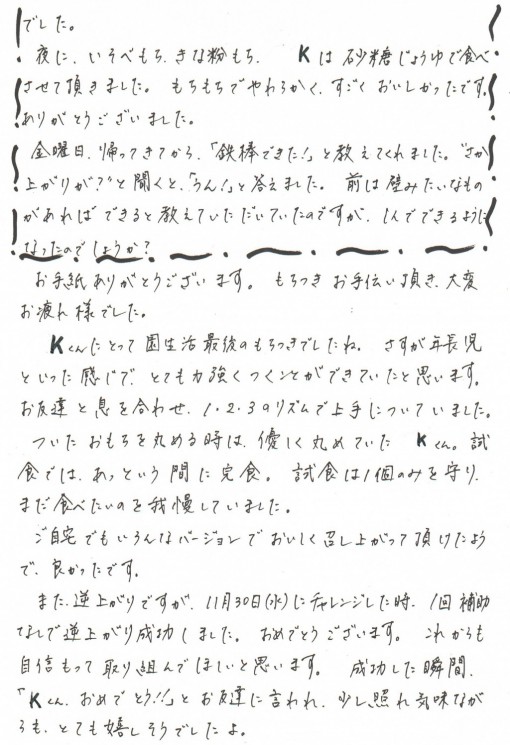 でした。
夜に、いそべもち、きな粉もち、 Kは砂糖じょうゆで食べ
させて頂きました。 もちもちでやわらかく、すごくおいしかったです。
ありがとうございました。
金曜日、帰ってきてから、「鉄棒できた!」と教えてくれました。"さか
上がりが?"と聞くと、「うん!」と答えました。 前は壁みたいなもの
があればできると教えていただいていたのですが、1人でできるように
なったのでしょうか?
お手紙ありがとうございます。 もちつきお手伝い頂き、大変
お疲れ様でした。
Kくんにとって園生活最後のもちつきでしたね。 さすが年長児
といった感じで、とても力強くつくことができていたと思います。
お友達と息を合わせ、1・2・3のリズムで上手についていました。
ついたおもちを丸める時は、優しく丸めていた Kくん。試
食では、あっという間に完食。 試食は1個のみを守り、
まだ食べたいのを我慢していました。
ご自宅でもいろんなバージョンでおいしく召し上がって頂けたよう
で、良かったです。
また、逆上がりですが、11月30日(水)にチャレンジした時、1回補助
なしで逆上がり成功しました。 おめでとうございます。 これからも
自信もって取り組んでほしいと思います。 成功した瞬間、
「Kくん、おめでとう!!」とお友達に言われ、少し照れ気味なが
らも、とても嬉しそうでしたよ。